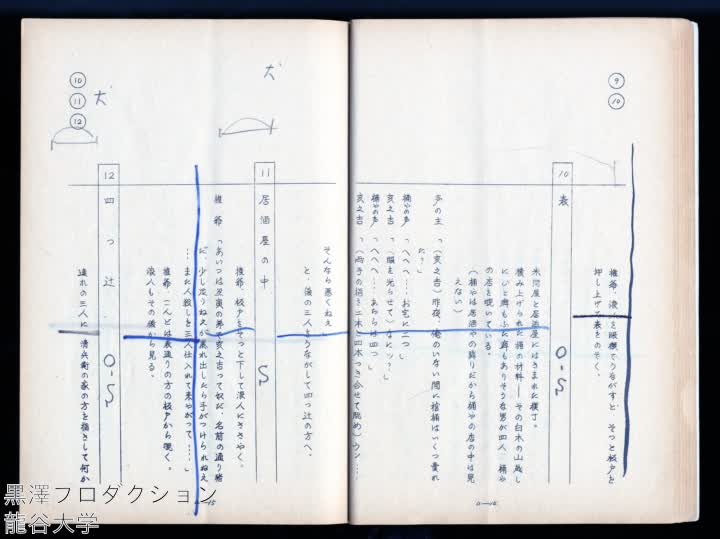 ⑨
⑩
権爺、浪人を眼標でうながすと、そっと板戸を
押し上げて表をのぞく。
10 表 O・S
米問屋と居酒屋にはさまれた横丁。
積み上げられた桶の材料——その白木の山越し
の店を覗いている。
(桶やは居酒やの隣りだから桶やの店の中は見
えない)
「(亥之吉)昨夜、俺のいない間に棺桶はいくつ売れ
た?」
桶やの声「へへへ……お宅に二つ」
亥之吉「(眼を光らせて)なにッ?」
桶やの声「へへへ……あちらは四つ」
亥之吉
そんなら悪くねえ
と、後の三人をうながして四つ辻の方へ。
11 居酒屋の中 S
権爺、板戸をそっと下して浪人にささやく。
権爺「あいつは丑寅の弟で亥之吉って奴だ、名前の通り猪
だ、少し足りねえが暴れ出したら手がつけられねえ
…また人殺しを三人仕入れて来やがって……」
権爺、こんどは表通りの方の板戸から覗く。
浪人もその後から見る。
12 四つ辻 O・S
連れの三人に、清兵衛の家の方を指さして何か
⑩
⑪
⑫
犬
犬
黒澤プロダクション
龍谷大学